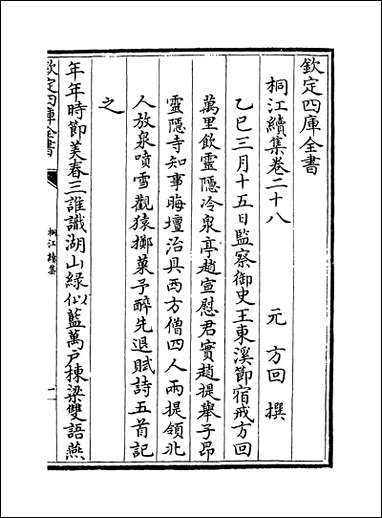 欽定四庫全書
桐江續集卷二十八
元 方回 撰
乙巳三月十五日監察御史王東溪節宿戒方回
萬里飲靈隱冷泉亭趙宣慰君實趙提舉子昂
靈隠寺知事晦壇治具西方僧四人兩提領北
人放泉噴雪觀猿擲菓予醉先退賦詩五首記
之
年年時節美春三誰識湖山緑似藍萬戸棟梁雙語燕
欽定四庫全書
桐江續集
一